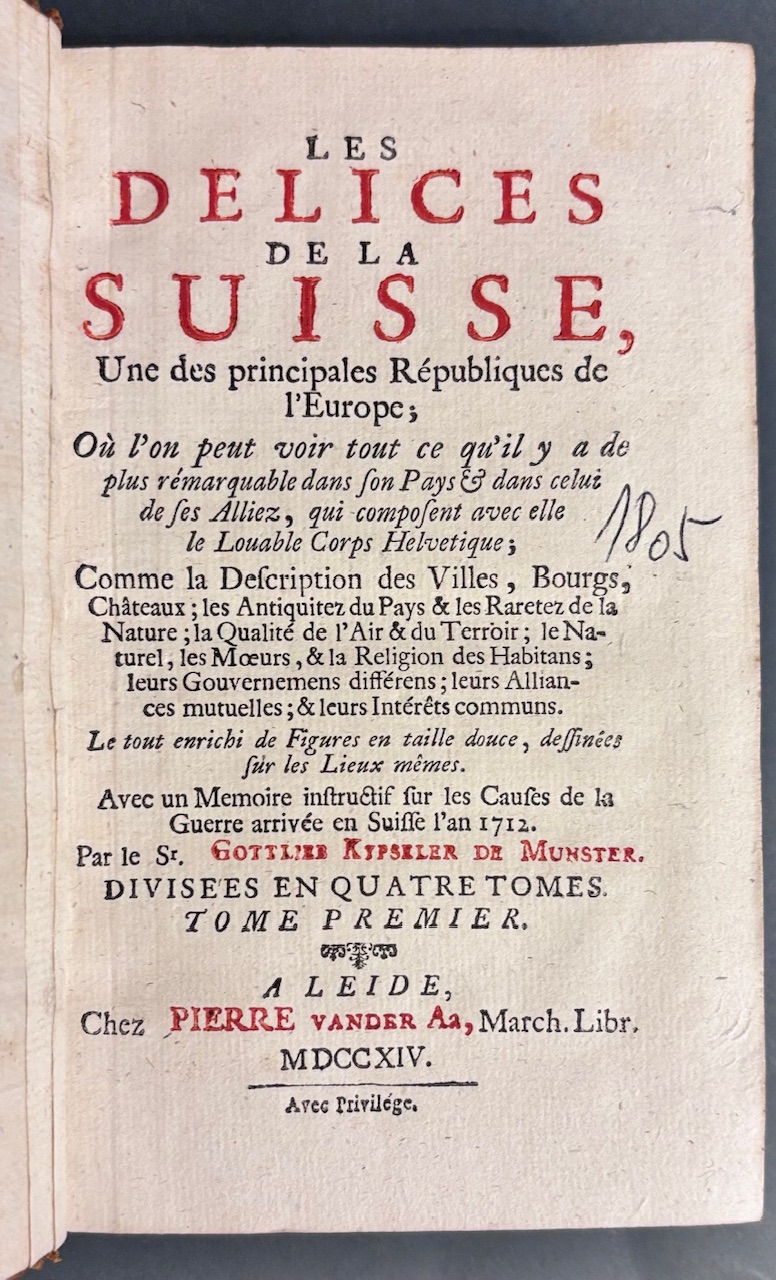 LES
DELICES
DE LA
SUISSE,
Une des principales Républiques de
l'Europe;
Où l'on peut voir tout ce qu'il y a de
plus rémarquable dans ſon Pays & dans celui
de ſes Alliez, qui compoſent avec elle
le Louable Corps Helvetique;
1805
Comme la Deſcription des Villes, Bourgs,
Châteaux; les Antiquitez du Pays & les Raretez de la
Nature; la Qualité de l'Air & du Terroir; le Na-
turel, les Mœurs, & la Religion des Habitans;
leurs Gouvernemens différens; leurs Allian-
ces mutuelles; & leurs Intérêts communs.
Le tout enrichi de Figures en taille douce, deſſinées
ſur les Lieux mêmes.
Avec un Memoire inſtructif ſur les Cauſes de la
Guerre arrivée en Suiſſe l'an 1712.
Par le Sr. GOTTLIEB KYPSELER DE MUNSTER.
DIVISE'ES EN QUATRE TOMES.
TOME PREMIER.
A LEIDE,
Chez PIERRE VANDER AA, March. Libr.
MDCCXIV.
Avec Privilége.